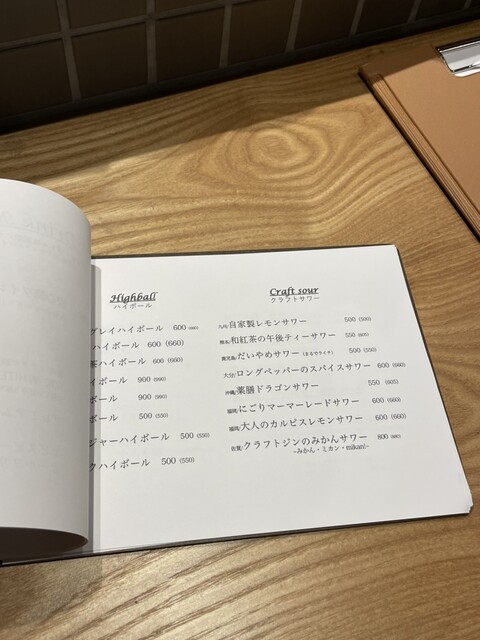 Highball
ハイボール
グレイハイボール 600 (660)
ハイボール 600 (660)
茶ハイボール 600 (660)
ボール 900 (990)
ボール 900 (990)
ボール 500 (550)
ジャーハイボール 500 (550)
クハイボール 500 (550)
Craft sour
クラフトサワー
九州/自家製レモンサワー 500 (550)
熊本/和紅茶の午後ティーサワー 550 (605)
鹿児島/だいやめサワー (まるでライチ) 500 (550)
大分/ロングペッパーのスパイスサワー 600 (660)
沖縄/薬膳ドラゴンサワー 550 (605)
福岡/にごりマーマーレードサワー 600 (660)
福岡/大人のカルピスレモンサワー 600 (660)
佐賀/クラフトジンのみかんサワー 800 (880)
~みかん・ミカン・mikan!~